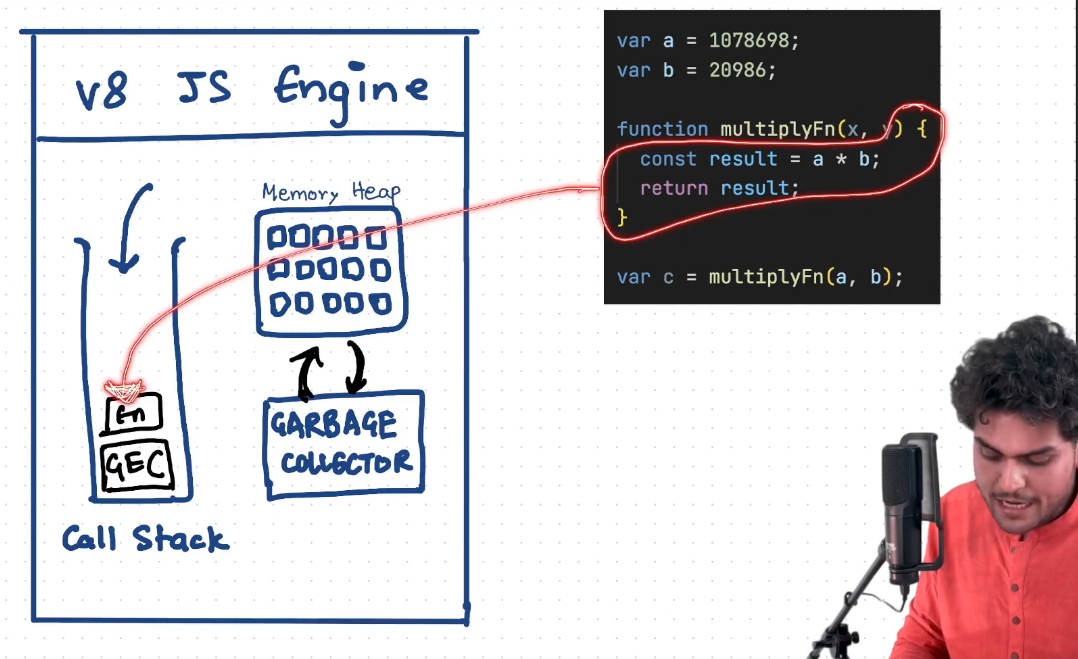 v8 JS Engine
Memory Heap
fn
GEC
GARBAGE
COLLECTOR
Call Stack
var a = 1078698;
var b = 20986;
function multiplyFn(x, y) {
const result = a * b;
return result;
}
var c = multiplyFn(a, b);